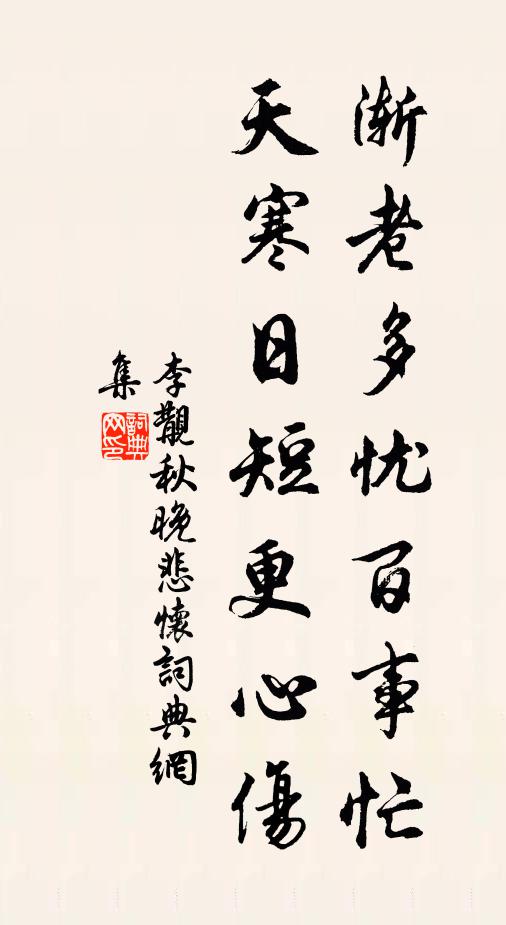 渐老多忧百事忙
天寒日短更心傷
李觏秋晚悲懷詞典網
集
詞典
网印